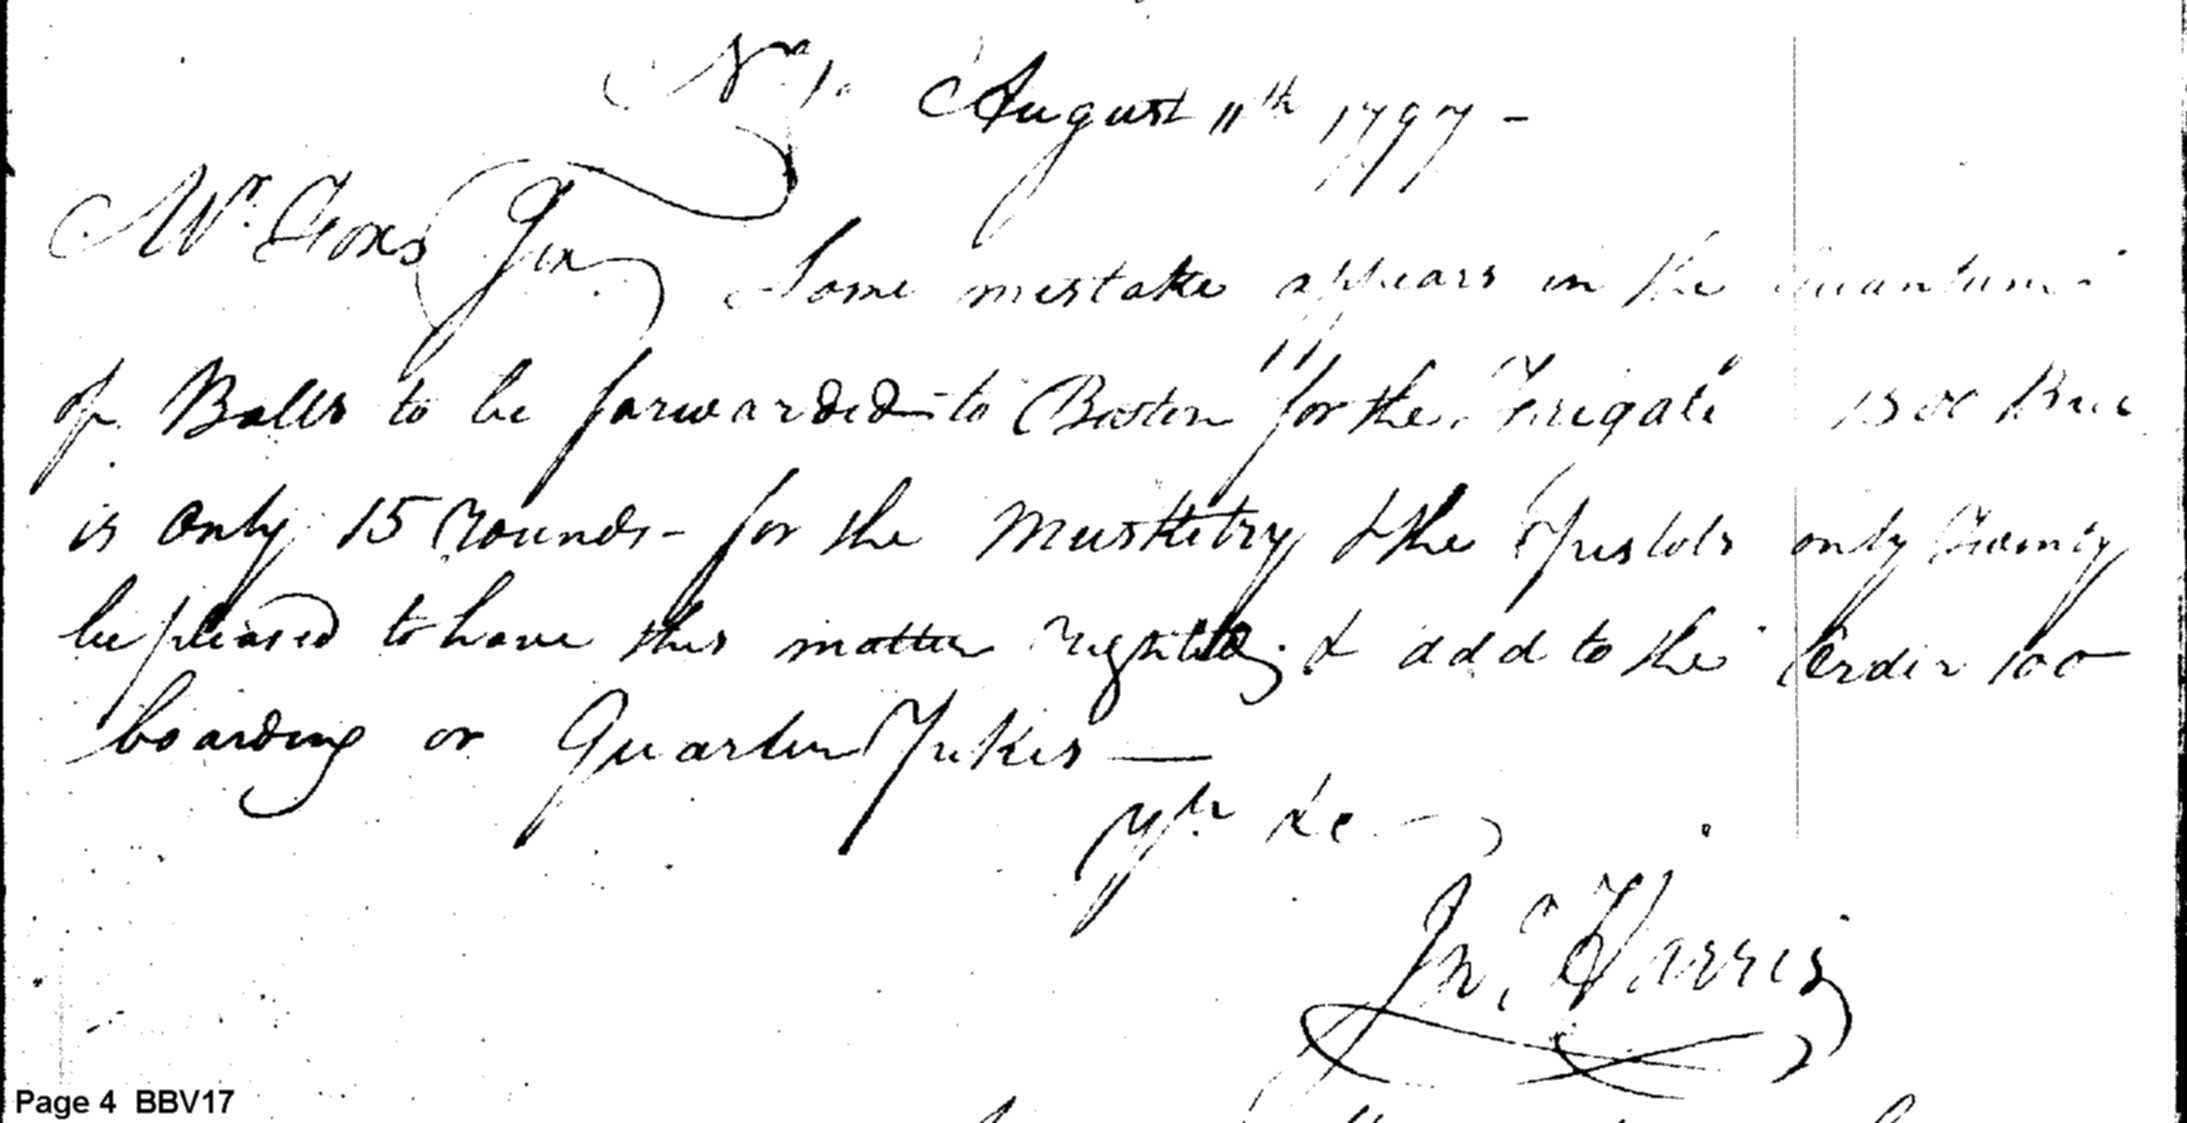 August 11th 1797 -
Mr. Gones Sir Some mistake appears in the quantum
of Balls to be forwarded to Boston for the Frigate 1500
is only 15 rounds - for the Musketry & the Pistols only Twenty
be pleased to have this matter & add to the order 100
boarding or Quarter Pikes —
Yrs &c -
Jno. Harris
Page 4 BBV17